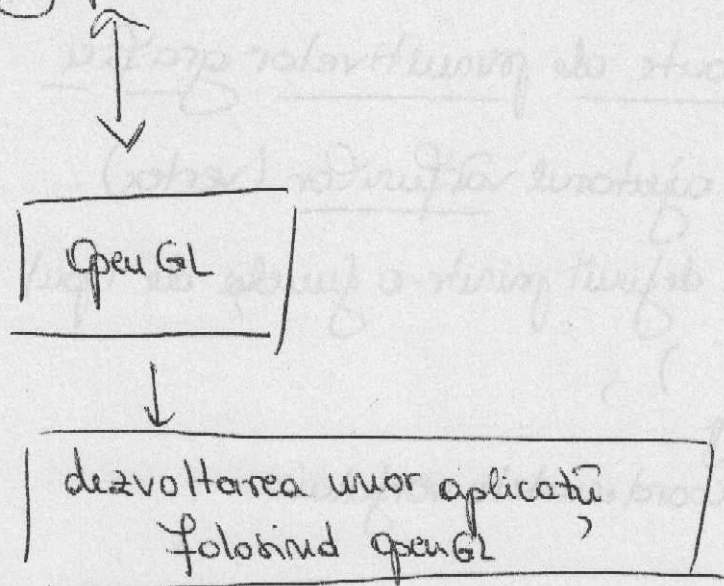 OpenGL
dezvoltarea unor aplicații
folosind OpenGL